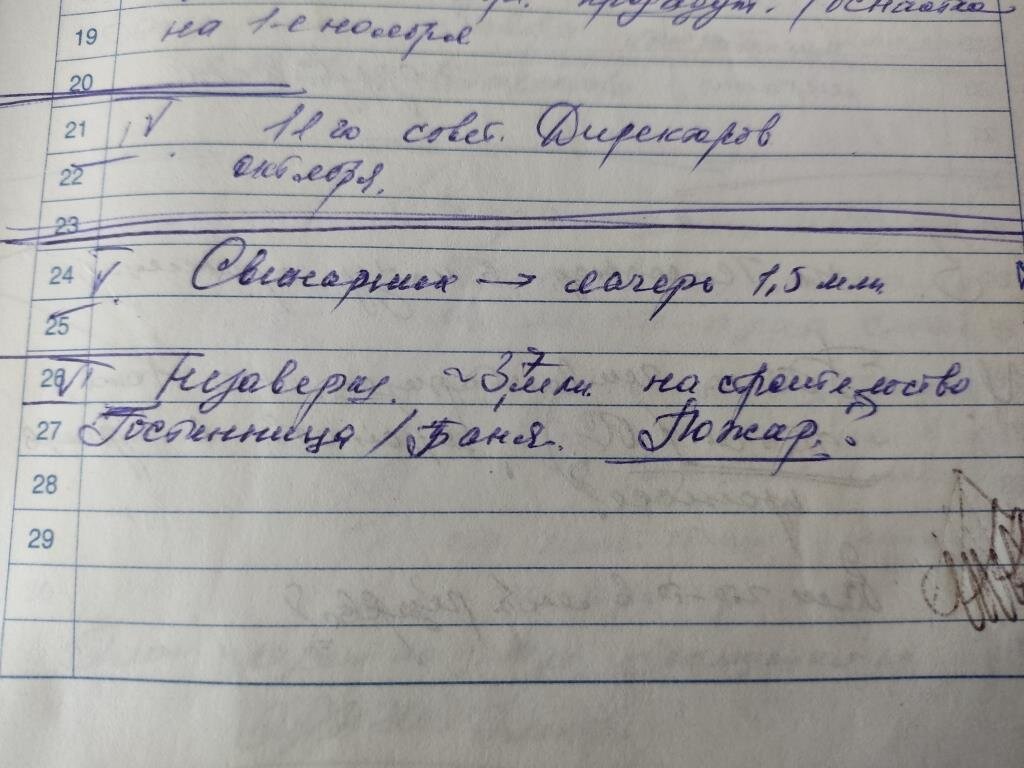 19 на 1-е ноября
20
21 √ 11го совет. Директоров
22 октября.
23
24 √ Свинарник → лагерь 1,5 млн.
25
26 √ ~3,7 млн. на строительство
27 Гостинница / Баня. Пожар.
28
29